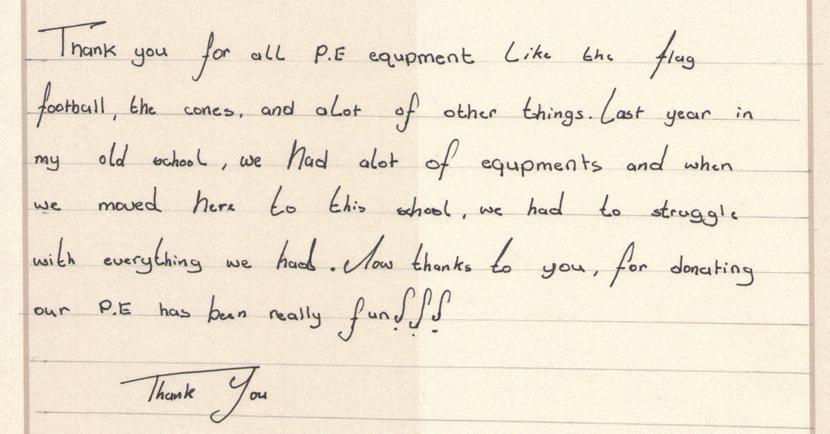 Thank you for all P.E equpment Like the flag
football, the cones, and alot of other things. Last year in
my old school, we had alot of equpments and when
we moved here to this school, we had to struggle
with everything we had. Now thanks to you, for donating
our P.E has been really fun!!!
Thank You